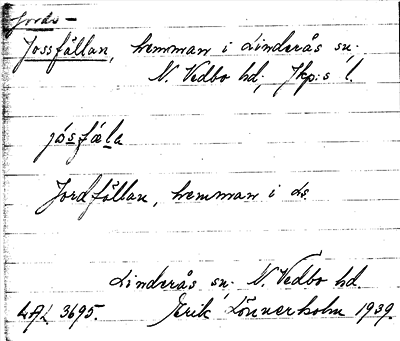 Jords-
Jossfållan, hemman i Linderås sn.
N. Vedbo hd., Jkp:s l.
jósfála
Jordfållan, hemman i ds.
Linderås sn, N. Vedbo hd.
LAL 3695. Erik Lönnerholm 1939.